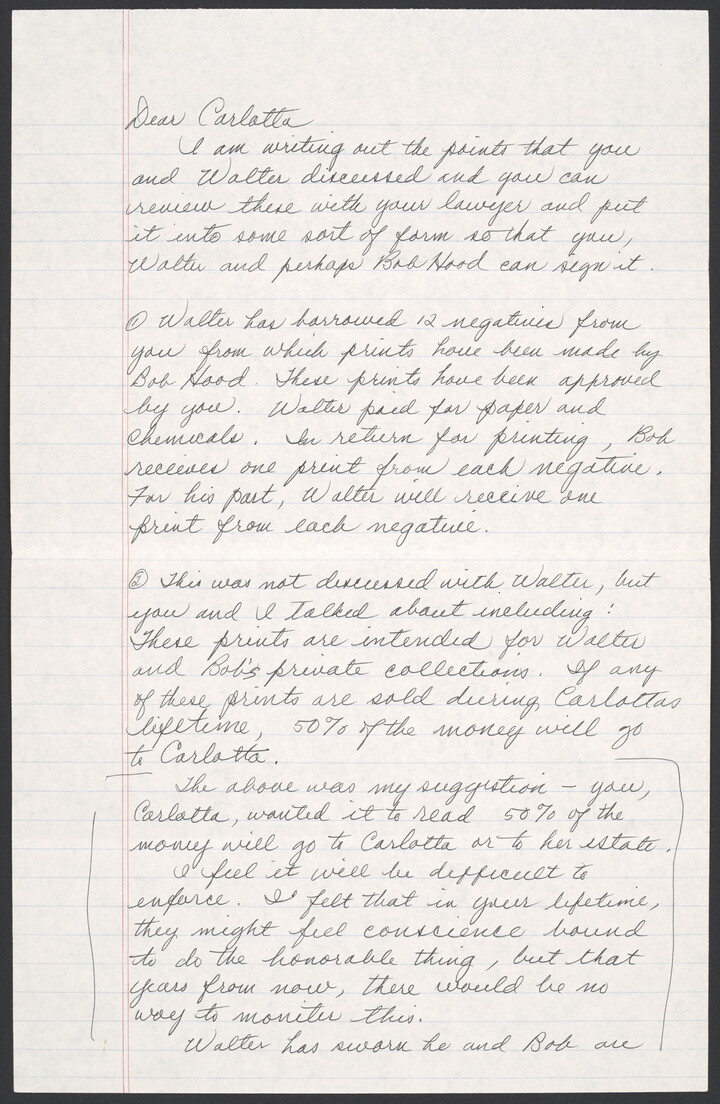 Dear Carlotta
I am writing out the points that you
and Walter discussed and you can
review these with your lawyer and put
it into some sort of form so that you,
Walter and perhaps Bob Hood can sign it.
① Walter has borrowed 12 negatives from
you from which prints have been made by
Bob Hood. These prints have been approved
by you. Walter paid for paper and
chemicals. In return for printing, Bob
receives one print from each negative.
For his part, Walter will receive one
print from each negative.
② This was not discussed with Walter, but
you and I talked about including:
These prints are intended for Walter
and Bob's private collections. If any
of these prints are sold during Carlottas
lifetime, 50% of the money will go
to Carlotta.
The above was my suggestion - you,
Carlotta, wanted it to read 50% of the
money will go to Carlotta or to her estate.
I feel it will be difficult to
enforce. I felt that in your lifetime,
they might feel conscience bound
to do the honorable thing, but that
years from now, there would be no
way to moniter this.
Walter has sworn he and Bob are